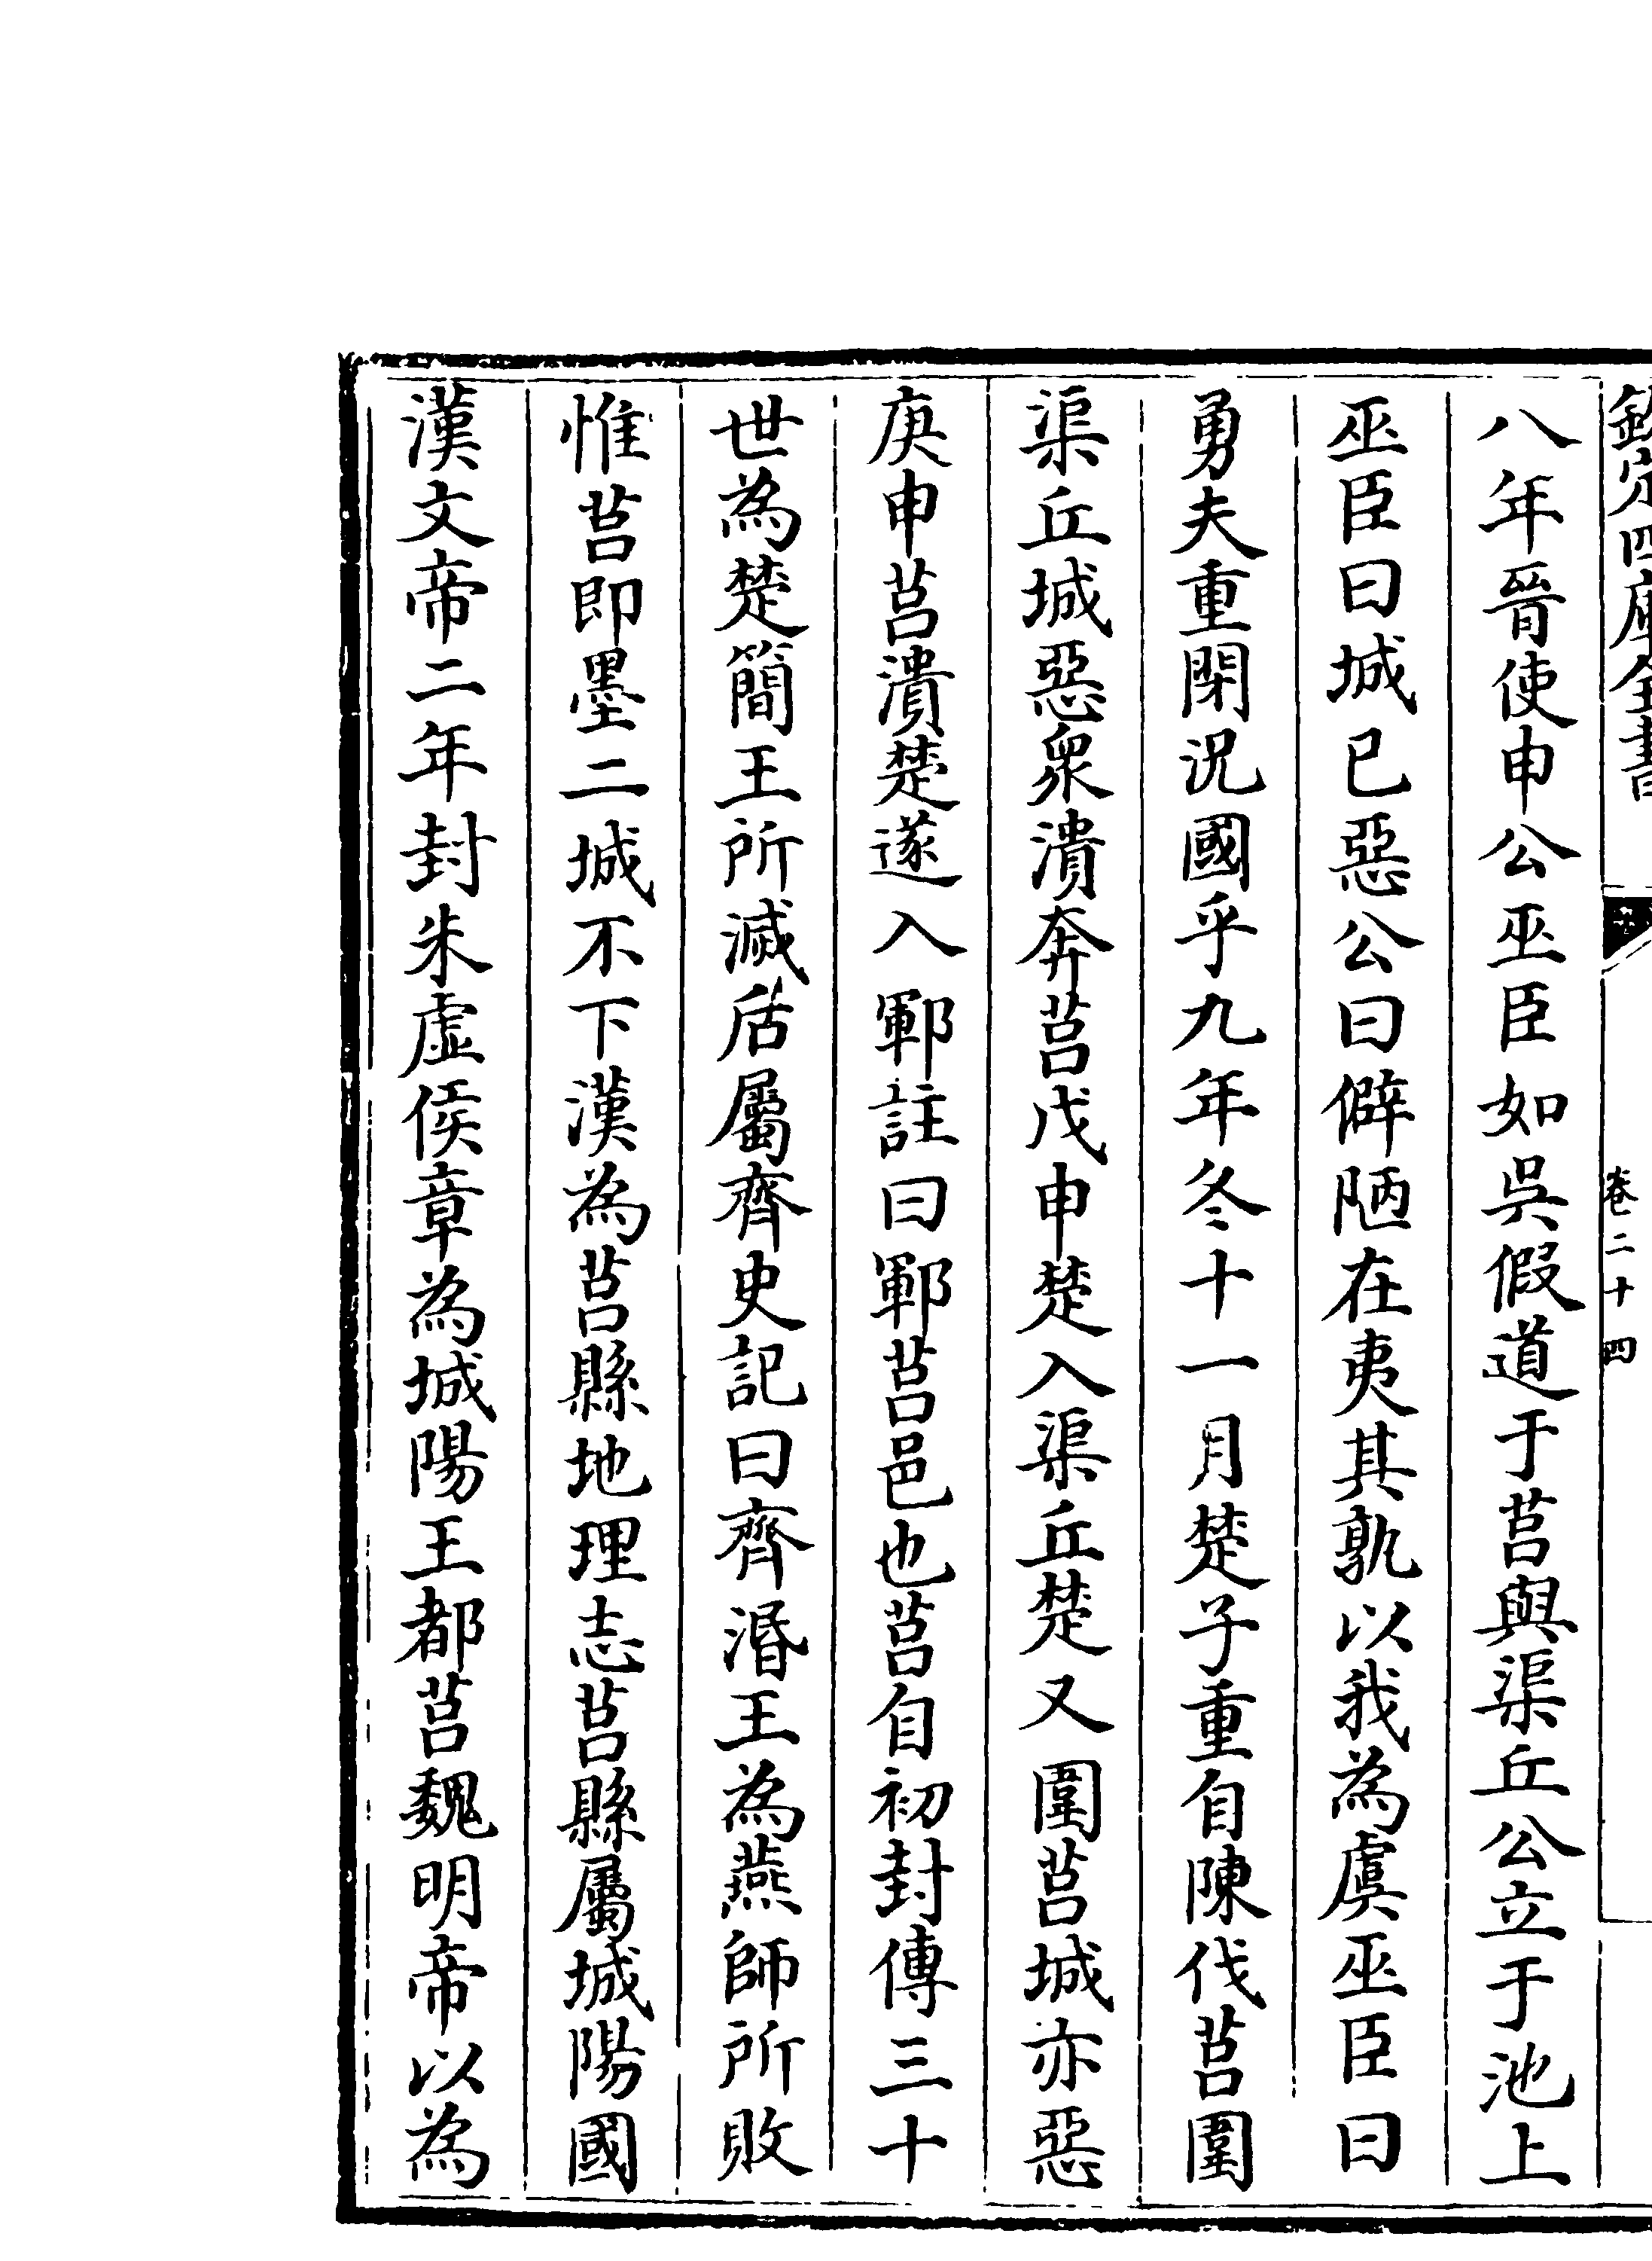 欽定四庫全書
卷二十四
八年晉使申公巫臣如吳假道于莒與渠丘公立于池上
巫臣曰城已惡公曰僻陋在夷其孰以我為虞巫臣曰
勇夫重閉況國乎九年冬十一月楚子重自陳伐莒圍
渠丘城惡衆潰奔莒戊申楚入渠丘楚又圍莒城亦惡
庚申莒潰楚遂入鄆註曰鄆莒邑也莒自初封傳三十
世為楚簡王所滅后屬齊史記曰齊湣王為燕師所敗
惟莒即墨二城不下漢為莒縣地理志莒縣屬城陽國
漢文帝二年封朱虛侯章為城陽王都莒魏明帝以為